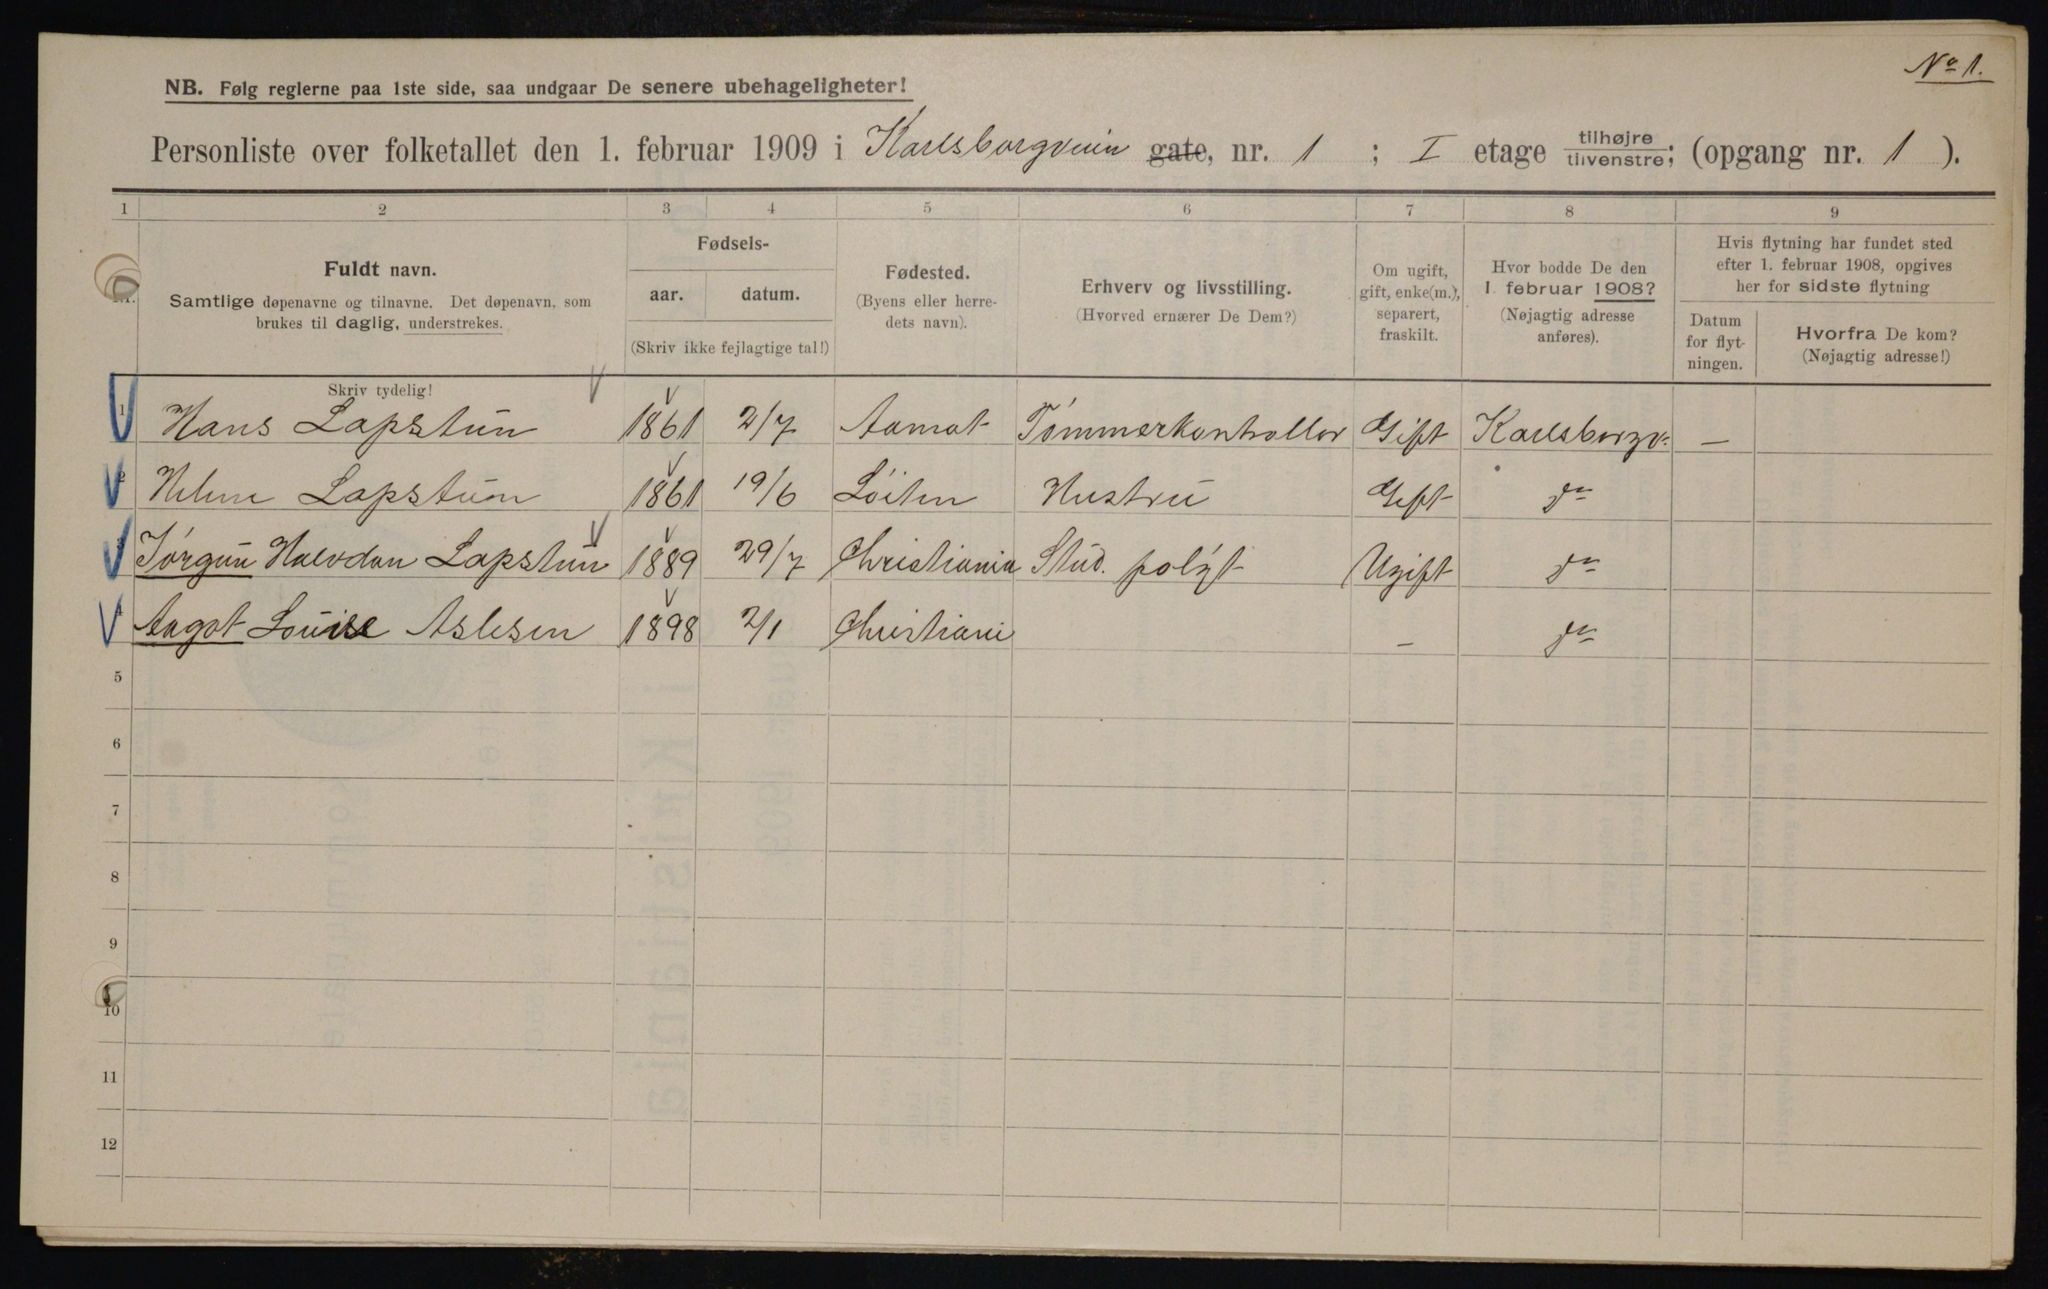 No 1.
NB. Følg reglerne paa 1ste side, saa undgaar De senere ubehageligheter!
Personliste over folketallet den 1. februar 1909 i Karlsborgveien gate, nr. 1 ; I etage tilhøjre tilvenstre; (opgang nr. 1 ).
1 2 3 4 5 6 7 8 9
Fuldt navn.
Samtlige døpenavne og tilnavne. Det døpenavn, som
brukes til daglig, understrekes.
Fødsels-
aar. datum.
(Skriv ikke fejlagtige tal!)
Fødested.
(Byens eller herre-
dets navn).
Erhverv og livsstilling.
(Hvorved ernærer De Dem?)
Om ugift,
gift, enke(m.),
separert,
fraskilt.
Hvor bodde De den
1. februar 1908?
(Nøjagtig adresse
anføres).
Hvis flytning har fundet sted
efter 1. februar 1908, opgives
her for sidste flytning
Datum
for flyt-
ningen.
Hvorfra De kom?
(Nøjagtig adresse!)
Skriv tydelig!
1 Hans Lapstun 1861 2/7 Aamot Tømmerkontrollør Gift Karlsborgv. —
2 Helene Lapstun 1861 19/6 Løiten Hustru Gift do
3 Jørgun Halvdan Lapstun 1889 29/7 Christiania Stud. polyt Ugift do
4 Aagot Louise Aslesen 1898 2/1 Christiani — do
5
6
7
8
9
10
11
12